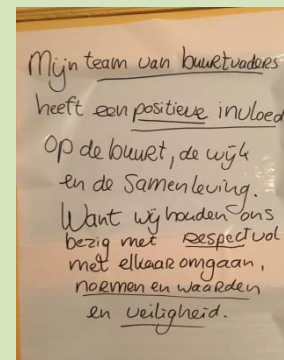 Mijn team van buurtvaders
heeft een positieve invloed
op de buurt, de wijk
en de Samenleving.
Want wij houden ons
bezig met respectvol
met elkaar omgaan,
normen en waarden
en veiligheid.